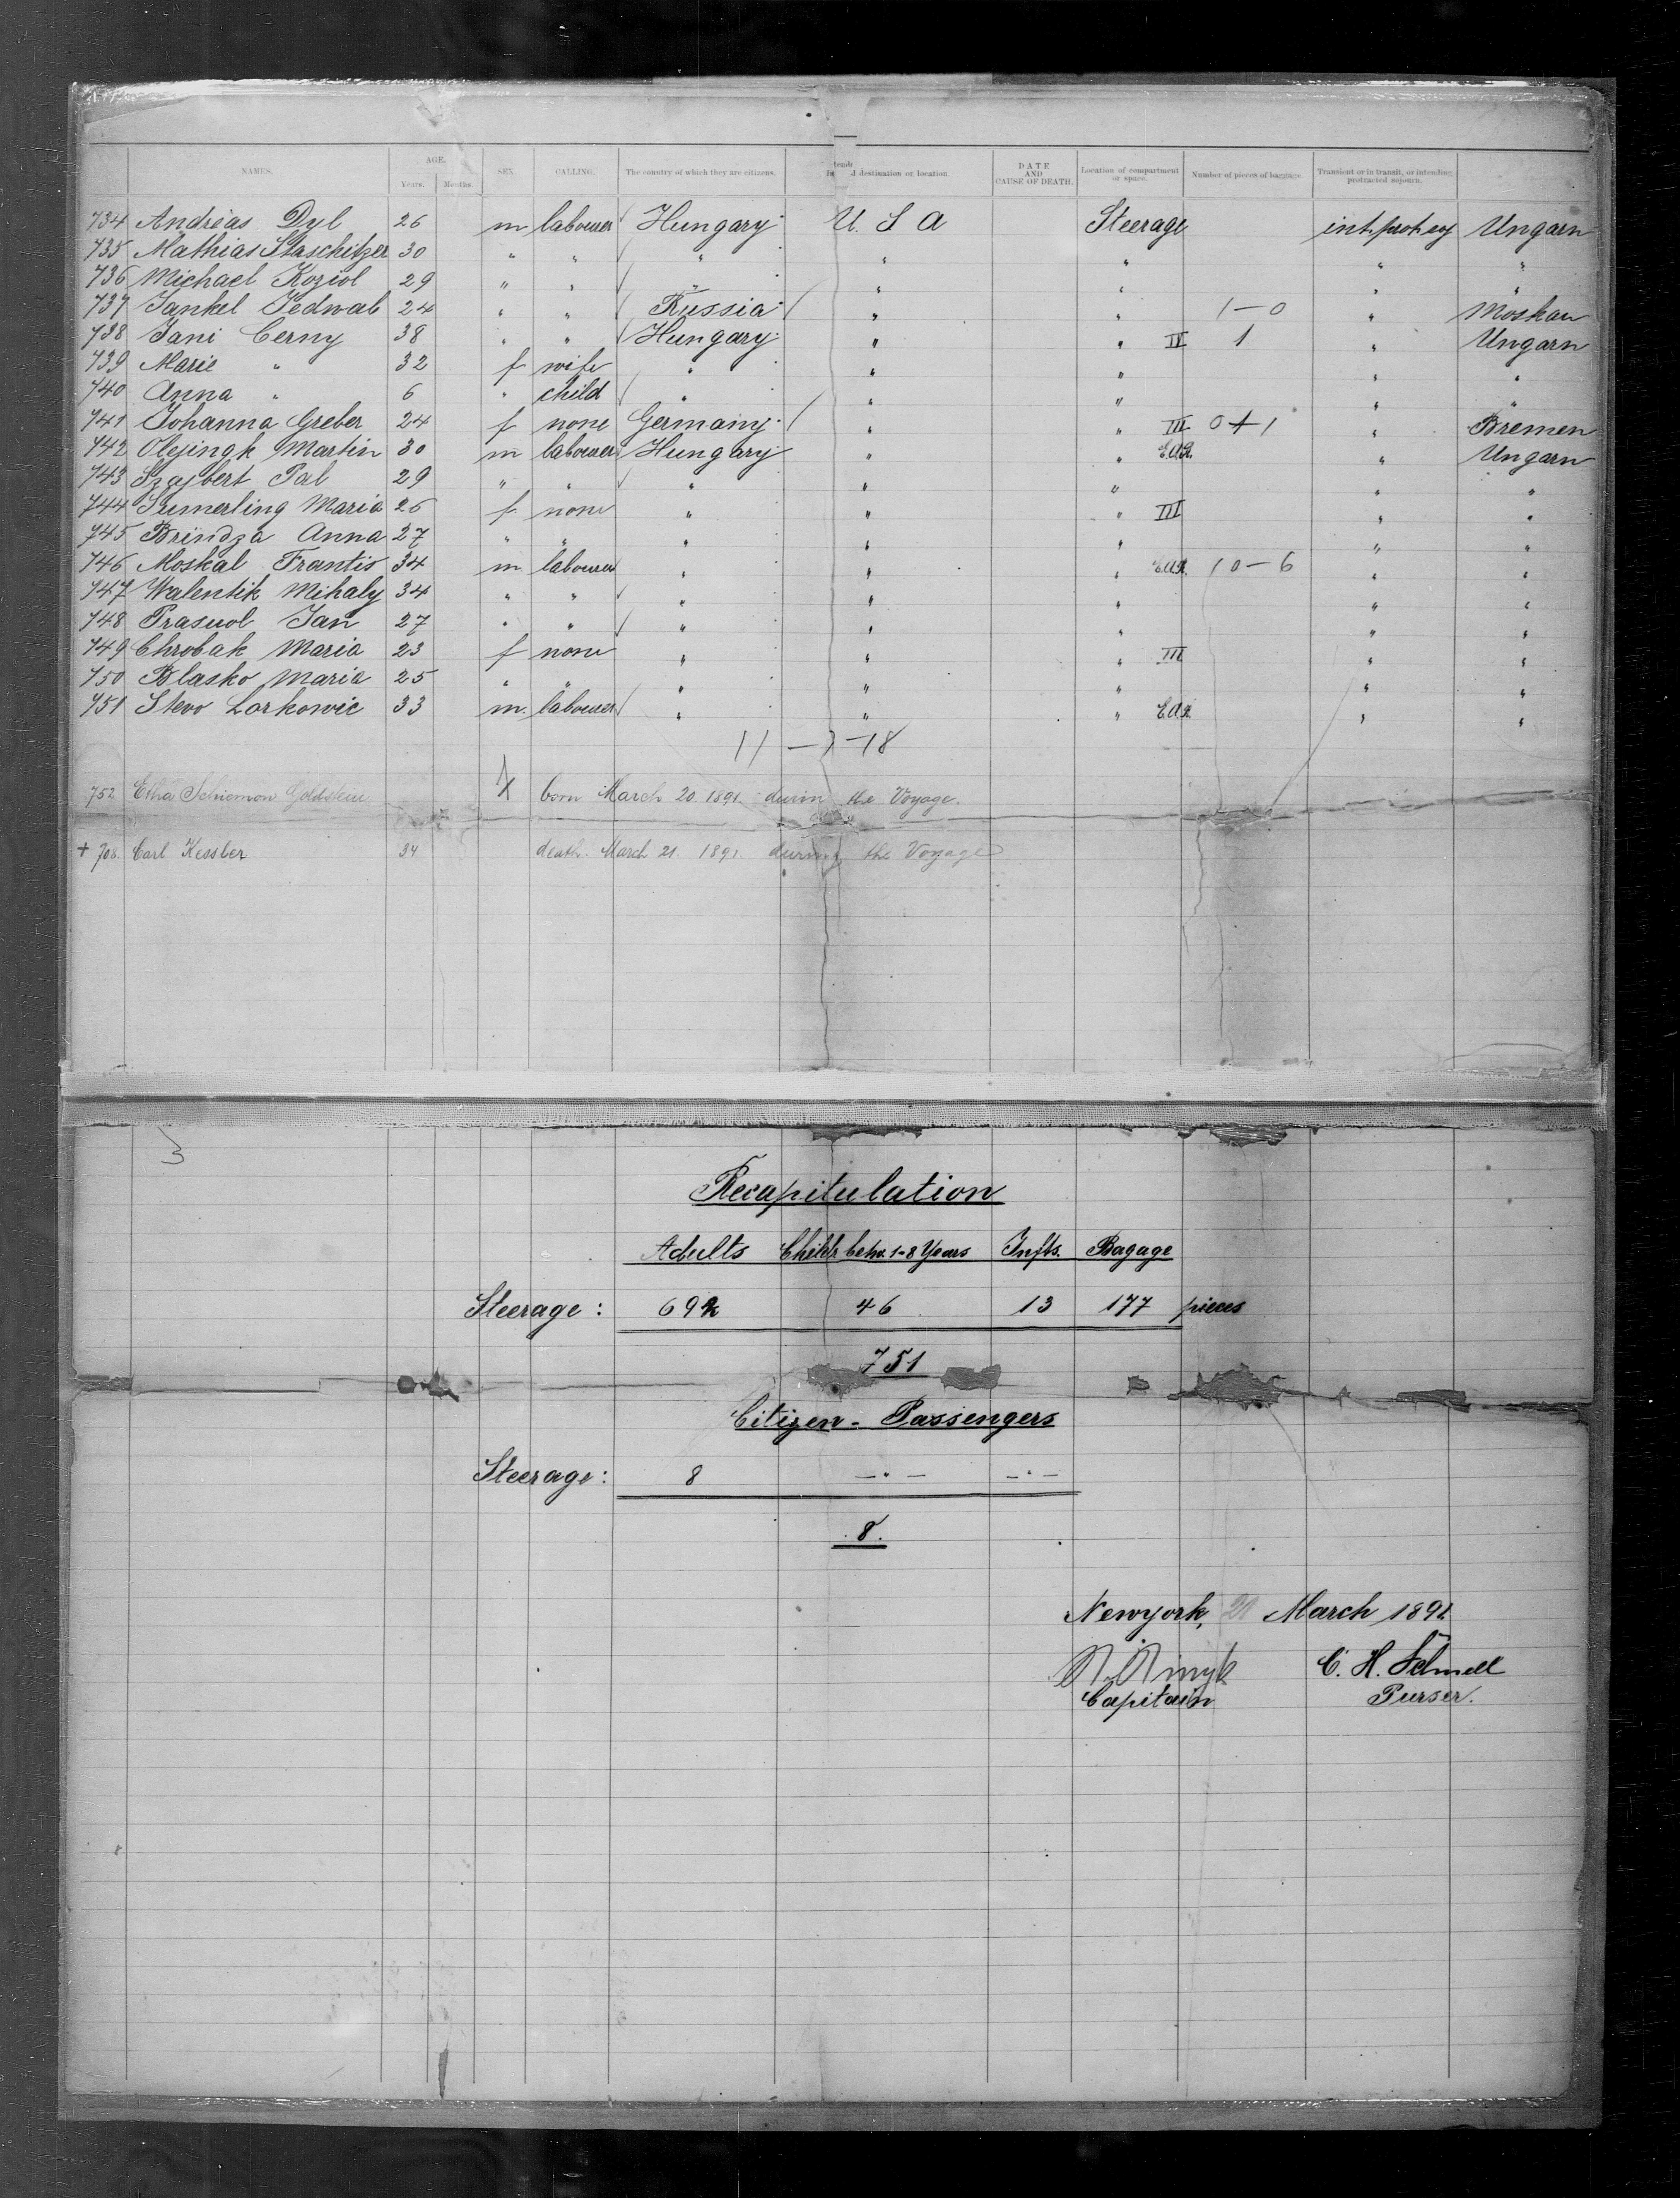 NAMES. AGE. Years. Months. SEX. CALLING. The country of which they are citizens. Intended destination or location. DATE AND CAUSE OF DEATH. Location of compartment or space. Number of pieces of baggage. Transient or in transit, or intending protracted sojourn.
734 Andreas Dyl 26 m labourer Hungary U. S A Steerage int. protr. soj Ungarn
735 Mathias Staschitzer 30 " " " " " " "
736 Michael Koziol 29 " " " " " " "
737 Jankel Jedwab 24 " " Russia " " 1-0 " Moskau
738 Jani Cerny 38 " " Hungary " " II 1 " Ungarn
739 Marie " 32 f wife " " " " "
740 Anna " 6 " child " " " " "
741 Johanna Greber 24 f none Germany " " III 0+1 " Bremen
742 Olejingk Martin 30 m labourer Hungary " " " Ungarn
743 Szajbert Pal 29 " " " " " " "
744 Sumerling Maria 26 f none " " " III " "
745 Brindza Anna 27 " " " " " " "
746 Moskal Frantis 34 m labourer " " " 10-6 " "
747 Walentik Mihaly 34 " " " " " " "
748 Prasuol Jan 27 " " " " " " "
749 Chrobak Maria 23 f none " " " III " "
750 Blasko Maria 25 " " " " " " "
751 Stevo Lorkowic 33 m. labourer " " " " "
11-7-18
752 Etha Schiemon Goldstein born March 20. 1891. durin the Voyage.
+ 708. Carl Kessler 34 death. March 21. 1891. during the Voyage
3
Recapitulation
Adults Childr. betw. 1-8 Years Infts. Bagage
Steerage: 692 46 13 177 pieces
751
Citizen-Passengers
Steerage: 8 — " — — " —
8.
Newyork, 21 March 1891
C. H. Schmell
Capitain Purser.